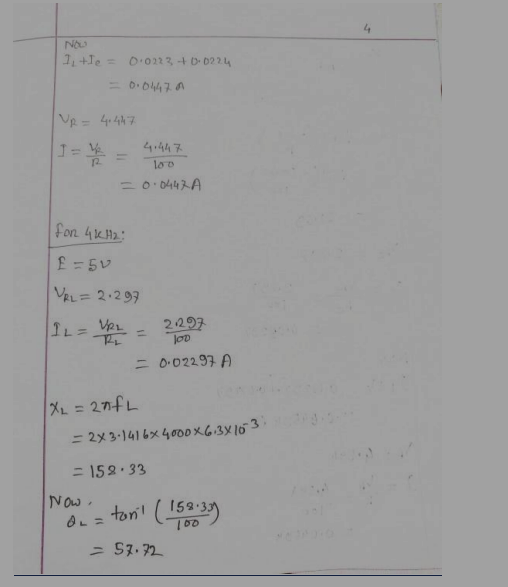 4
Now
I_L + I_C = 0.0223 + 0.0224
= 0.0447 A
V_R = 4.447
I = V_R/R = 4.447/100
= 0.0447 A
for 4 kHz:
E = 5v
V_RL = 2.297
I_L = V_RL/R_L = 2.297/100
= 0.02297 A
X_L = 2πfL
= 2×3.1416×4000×6.3×10^-3
= 158.33
Now.
θ_L = tan^-1 (158.33/100)
= 57.72